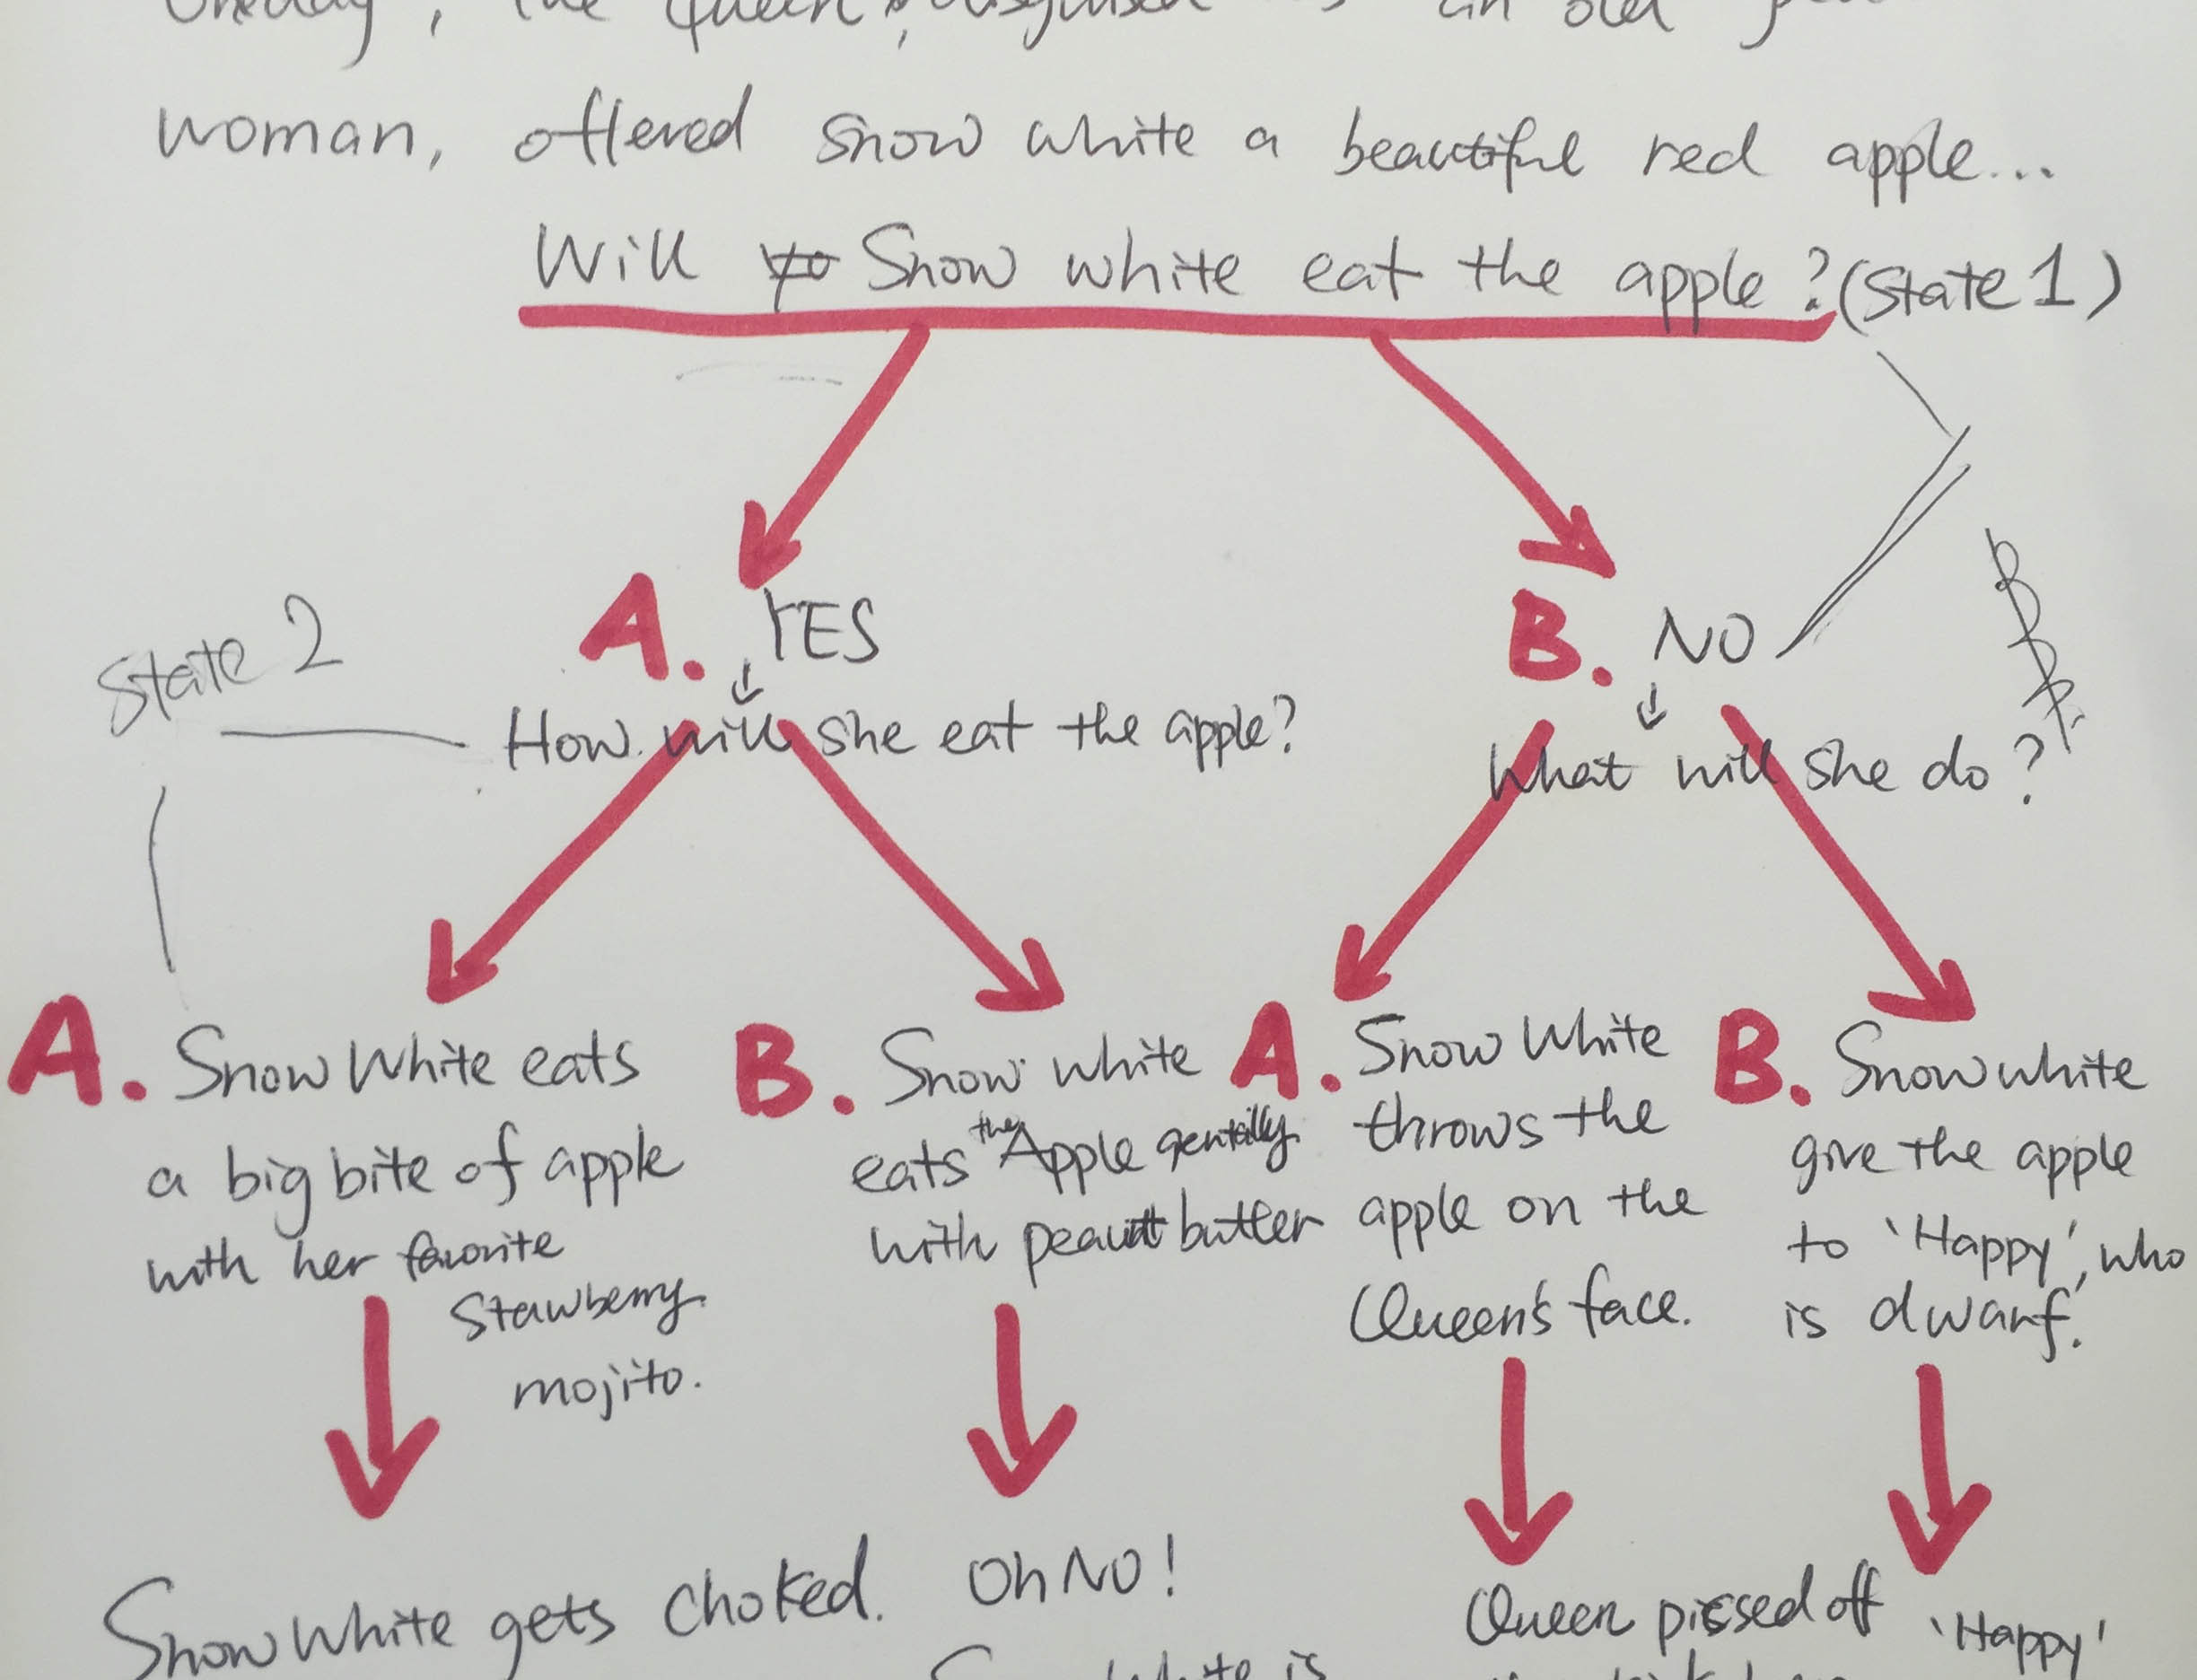 Oneday, the Queen, disguised an old
woman, offered Snow white a beautiful red apple...
Will Snow white eat the apple? (State 1)
A. YES
B. NO
State 2
How will she eat the apple?
What will she do?
A. Snow White eats
a big bite of apple
with her favorite
Stawberry
mojito.
B. Snow white
eats the Apple
with peanut butter
A. Snow White
throws the
apple on the
Queen's face.
B. Snow white
give the apple
to 'Happy', who
is dwarf.
Snow White gets choked.
Oh NO!
Queen pissed off
'Happy'
White is